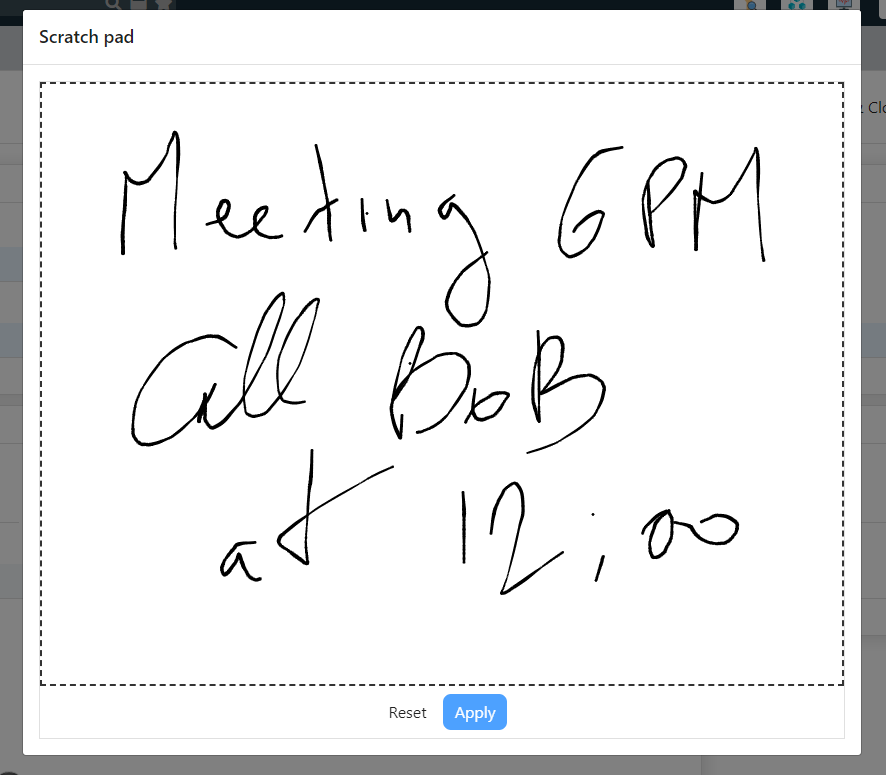 Scratch pad
Meeting 6PM
Call BoB
at 12:00
Reset
Apply